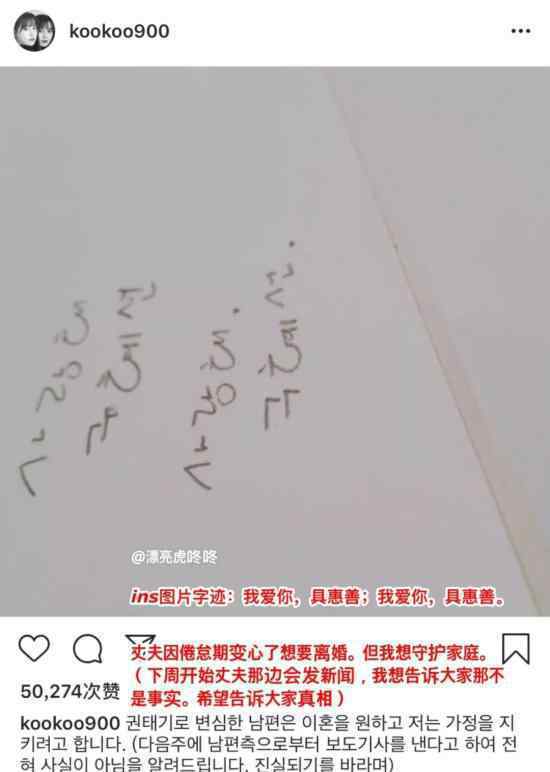 kookoo900
@漂亮虎咚咚
ins图片字迹：我爱你，具惠善；我爱你，具惠善。
丈夫因倦怠期变心了想要离婚。但我想守护家庭。
（下周开始丈夫那边会发新闻，我想告诉大家那不
是事实。希望告诉大家真相）
50,274次赞
kookoo900 권태기로 변심한 남편은 이혼을 원하고 저는 가정을 지
키려고 합니다. (다음주에 남편측으로부터 보도기사를 낸다고 하여 전
혀 사실이 아님을 알려드립니다. 진실되기를 바라며)